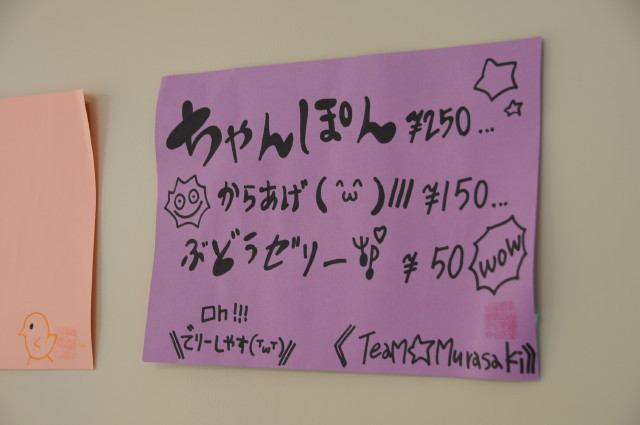 ちゃんぽん ¥250...
からあげ(^ω^)/// ¥150...
ぶどうゼリー ¥50
wow
Oh!!!
\\でりーしゃす(TωT)//
《TeaM☆Murasaki》